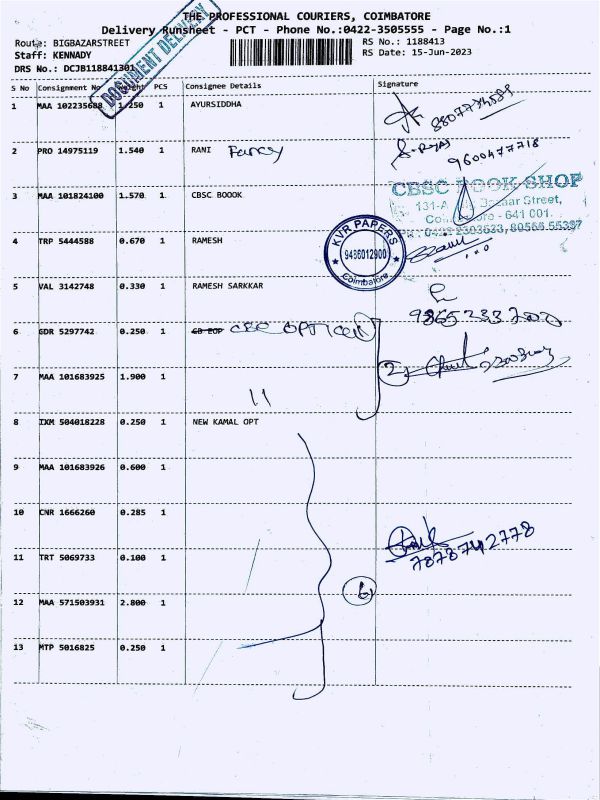 THE PROFESSIONAL COURIERS, COIMBATORE
Delivery Runsheet - PCT - Phone No.:0422-3505555 - Page No.:1
Route: BIGBAZARSTREET
RS No.: 1188413
Staff: KENNADY
RS Date: 15-Jun-2023
DRS No.: DCJB118841301
DOCUMENT DELIVERY
S No Consignment No Weight PCS Consignee Details Signature
1 MAA 102235688 1.250 1 AYURSIDDHA
2 PRO 14975119 1.540 1 RANI Fancy
9600477718
3 MAA 101824100 1.570 1 CBSC BOOOK
CBSC BOOK SHOP
131-A Bazaar Street,
641 001.
4 TRP 5444588 0.670 1 RAMESH
KVR PAPERS
9486012900
Coimbatore
5 VAL 3142748 0.330 1 RAMESH SARKKAR
9865233700
6 GDR 5297742 0.250 1 CBC OPTICAL
7 MAA 101683925 1.900 1 11
2
8 IXM 504018228 0.250 1 NEW KAMAL OPT
9 MAA 101683926 0.600 1
10 CNR 1666260 0.285 1
7878742778
11 TRT 5069733 0.100 1
12 MAA 571503931 2.800 1
6
13 MTP 5016825 0.250 1